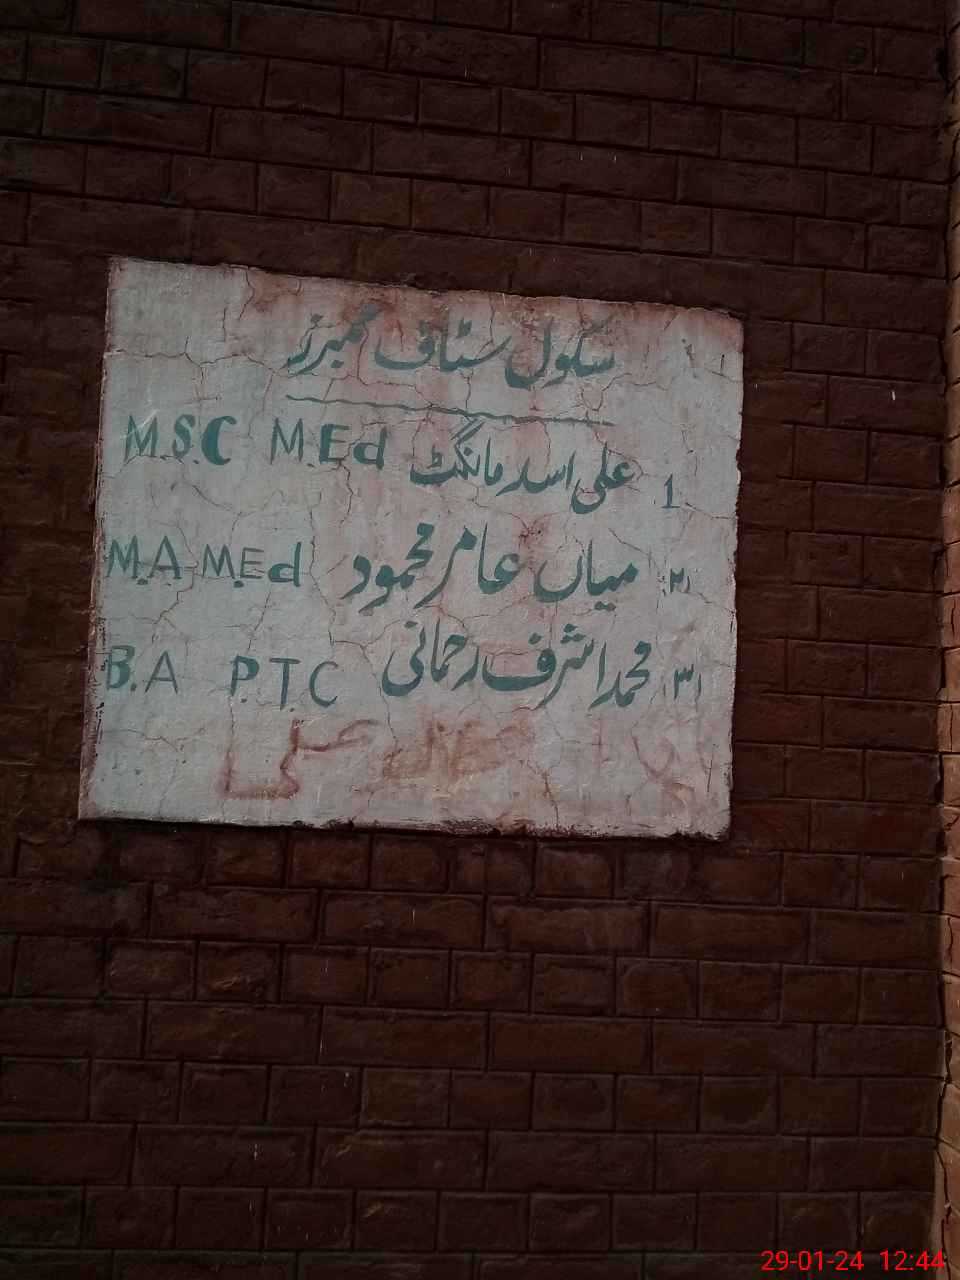 سکول سٹاف ممبرز
1 علی اسد مانگٹ M.S.C M.Ed
(۲) میاں عامر محمود M.A M.Ed
(۳) محمد اشرف رحمانی B.A P.T.C
29-01-24 12:44